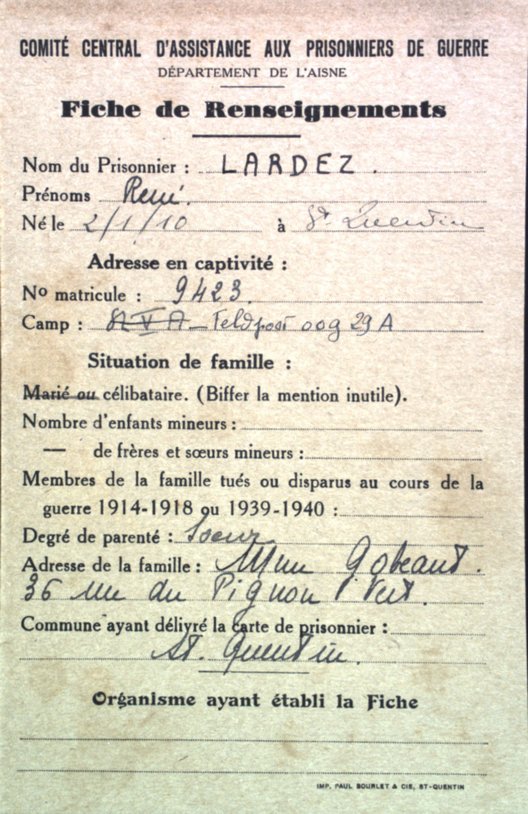 COMITÉ CENTRAL D'ASSISTANCE AUX PRISONNIERS DE GUERRE
DÉPARTEMENT DE L'AISNE
Fiche de Renseignements
Nom du Prisonnier : LARDEZ.
Prénoms René.
Né le 2/1/10 à St. Quentin
Adresse en captivité :
No matricule : 9423.
Camp : V A — Feldpost 00g 29 A
Situation de famille :
Marié ou célibataire. (Biffer la mention inutile).
Nombre d'enfants mineurs :
— de frères et sœurs mineurs :
Membres de la famille tués ou disparus au cours de la
guerre 1914-1918 ou 1939-1940 :
Degré de parenté : Soeur
Adresse de la famille : Mme
36 rue du Pignon Vert.
Commune ayant délivré la carte de prisonnier :
St. Quentin.
Organisme ayant établi la Fiche
IMP. PAUL BOURLET & CIE, ST-QUENTIN